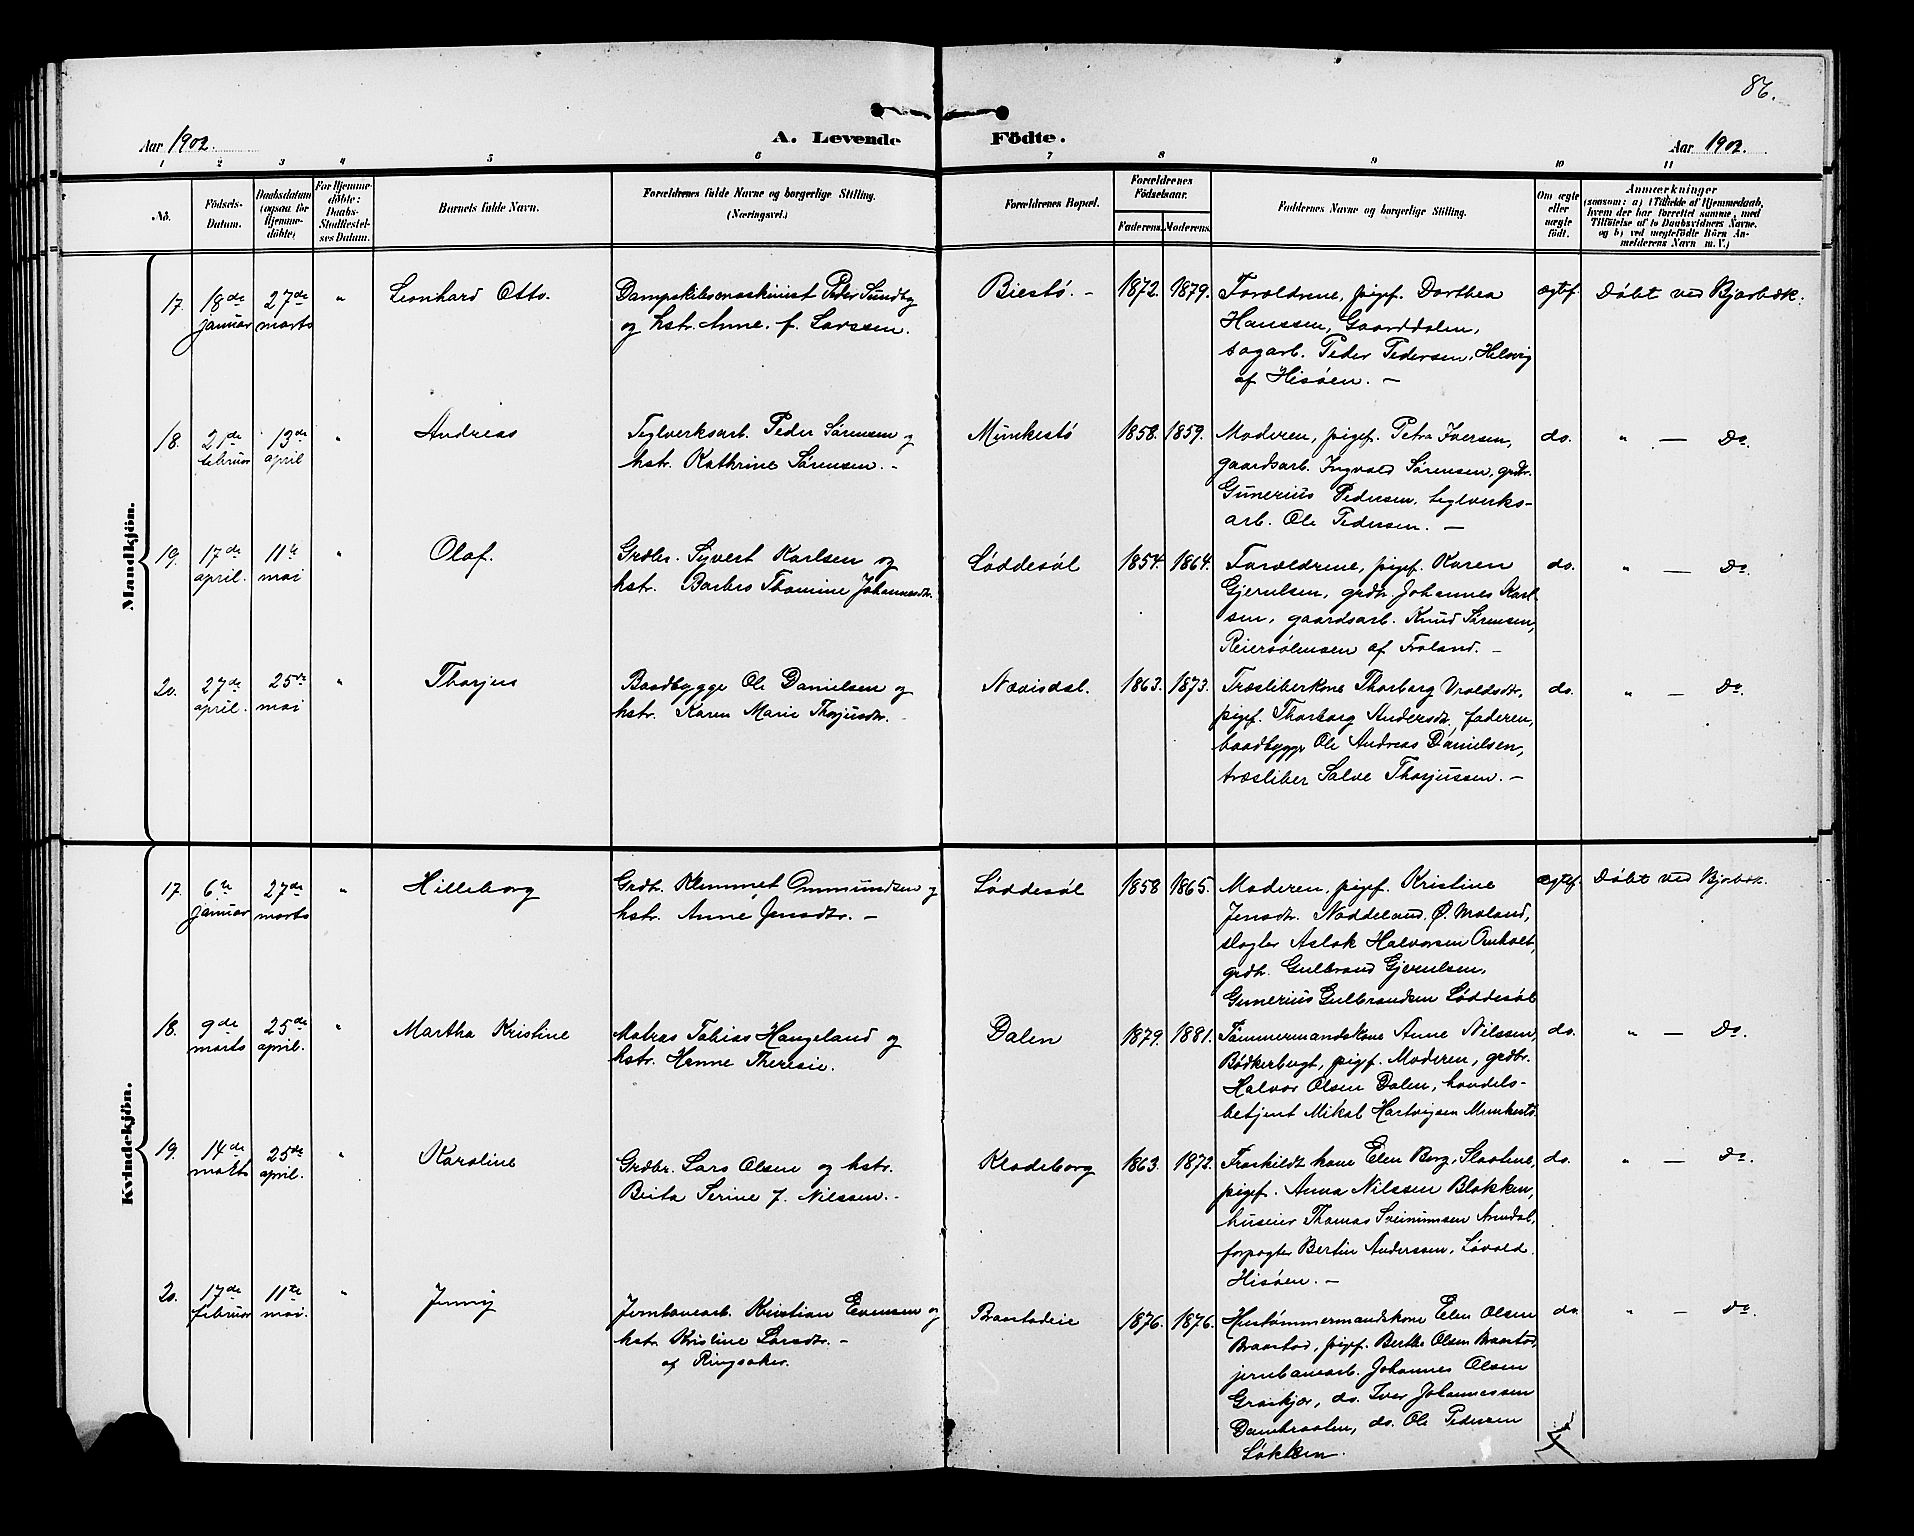 86.
Aar 1902.
A. Levende Födte.
Aar 1902.
1 2 3 4 5 6 7 8 9 10 11
No.
Födsels-
Datum.
Daabsdatum
(ogsaa for
Hjemme-
döbte)
For Hjemme-
döbte:
Daabs-
Stadfæstel-
ses Datum.
Barnets fulde Navn.
Forældrenes fulde Navne og borgerlige Stilling.
(Næringsvei.)
Forældrenes Bopæl.
Forældrenes
Födselsaar.
Faderens. Moderens.
Faddernes Navne og borgerlige Stilling.
Om ægte
eller
uægte
født.
Anmærkninger
(saasom: a) i Tilfælde af Hjemmedaab,
hvem der har forrettet samme, med
Tilföielse af to Daabsvidners Navne.
og b) ved uegtefödte Börn An-
melderens Navn m. V.)
Mandkjön.
17. 18de januar 27de marts " Leonhard Otto.
Dampskibsmaskinist Peder Sundby
og hstr. Anne f. Larssen.
Biestø. - 1872. 1879.
Forældrene, pigef. Dorthea
Hanssen, Gaarddalen,
sagarb. Peder Pedersen, Helvig
af Hisøen. -
ægtef. Døbt ved Bjorbæk.
18. 21de februar 13de april " Andreas
Teglverksarb. Peder Sørensen og
hstr. Kathrine Sørensen. -
Munkestø 1858. 1859.
Moderen, pigef. Petra Iversen,
gaardsarb. Ingvald Sørensen, grdbr.
Gunerius Pedersen, teglverks-
arb. Ole Pedersen. -
do. " - Do.
19. 17de april. 11te mai " Olaf.
Grdbr. Syvert Karlsen og
hstr. Barbro Thomine Johannesdtr.
Løddesøl 1854. 1864.
Forældrene, pigef. Karen
Gjerulsen, grdbr. Johannes Karl-
sen, gaardsarb. Knud Sørensen,
Reiersølmoen af Froland. -
do. " - Do.
20. 27de april. 25de mai " Thorjus
Baadbygge Ole Danielsen og
hstr. Karen Marie Thorjusdtr. -
Nævisdal. 1863. 1873.
Træsliberkone Thorborg Vroldsdtr,
pigef. Thorborg Andersdtr. faderen,
baadbygge Ole Andreas Danielsen,
træsliber Salve Thorjussen. -
do. " - Do.
Kvindekjön.
17. 6te januar 27de marts " Hilleborg
Grdbr. Klemmet Ommundsen og
hstr. Anne Jensdtr. -
Løddesøl 1858 1865.
Moderen, pigef. Kristine
Jensdtr. Naddeland, Ø. Moland,
slagter Aslak Halvorsen Omholt,
grdbr. Gulbrand Gjerulsen,
Gunerius Gulbrandsen Løddesøl
ægtef. Døbt ved Bjorbæk.
18. 9de marts 25de april. " Martha Kristine
Matros Tobias Haugeland og
hstr. Hanne Theresie.
Dalen 1879. 1881.
Tømmermandskone Anne Nilssen,
Bødkerbugt, pigef. Moderen, grdbr.
Halvor Olsen Dalen, handels-
betjent Mikal Hartvigsen Munkestø
do. " - Do.
19. 14de marts 25de april. " Karoline
Grdbr. Lars Olsen og hstr.
Berta Serine f. Nilssen. -
Klodeborg 1863. 1872.
Fraskildt kone Elen Berg, Slaatene,
pigef. Anna Nilssen Blakken,
huseier Thomas Sveinunsen Arendal,
forpagter Bertin Anderssen, Løvold
Hisøen. -
do. " - Do.
20. 17de februar 11te mai. " Jenny
Jernbanearb. Kristian Evensen og
hstr. Kristine Larsdtr. -
af Ringsaker.
Braastadeie 1876. 1876.
Hustømmermandskone Elen Olsen
Braastad, pigef. Berthe Olsen Braastad,
jernbanearb. Johannes Olsen
Graakjær, do. Iver Johannessen
Dambraaten, do. Ole Pedersen
Løkken.
do. " - Do.